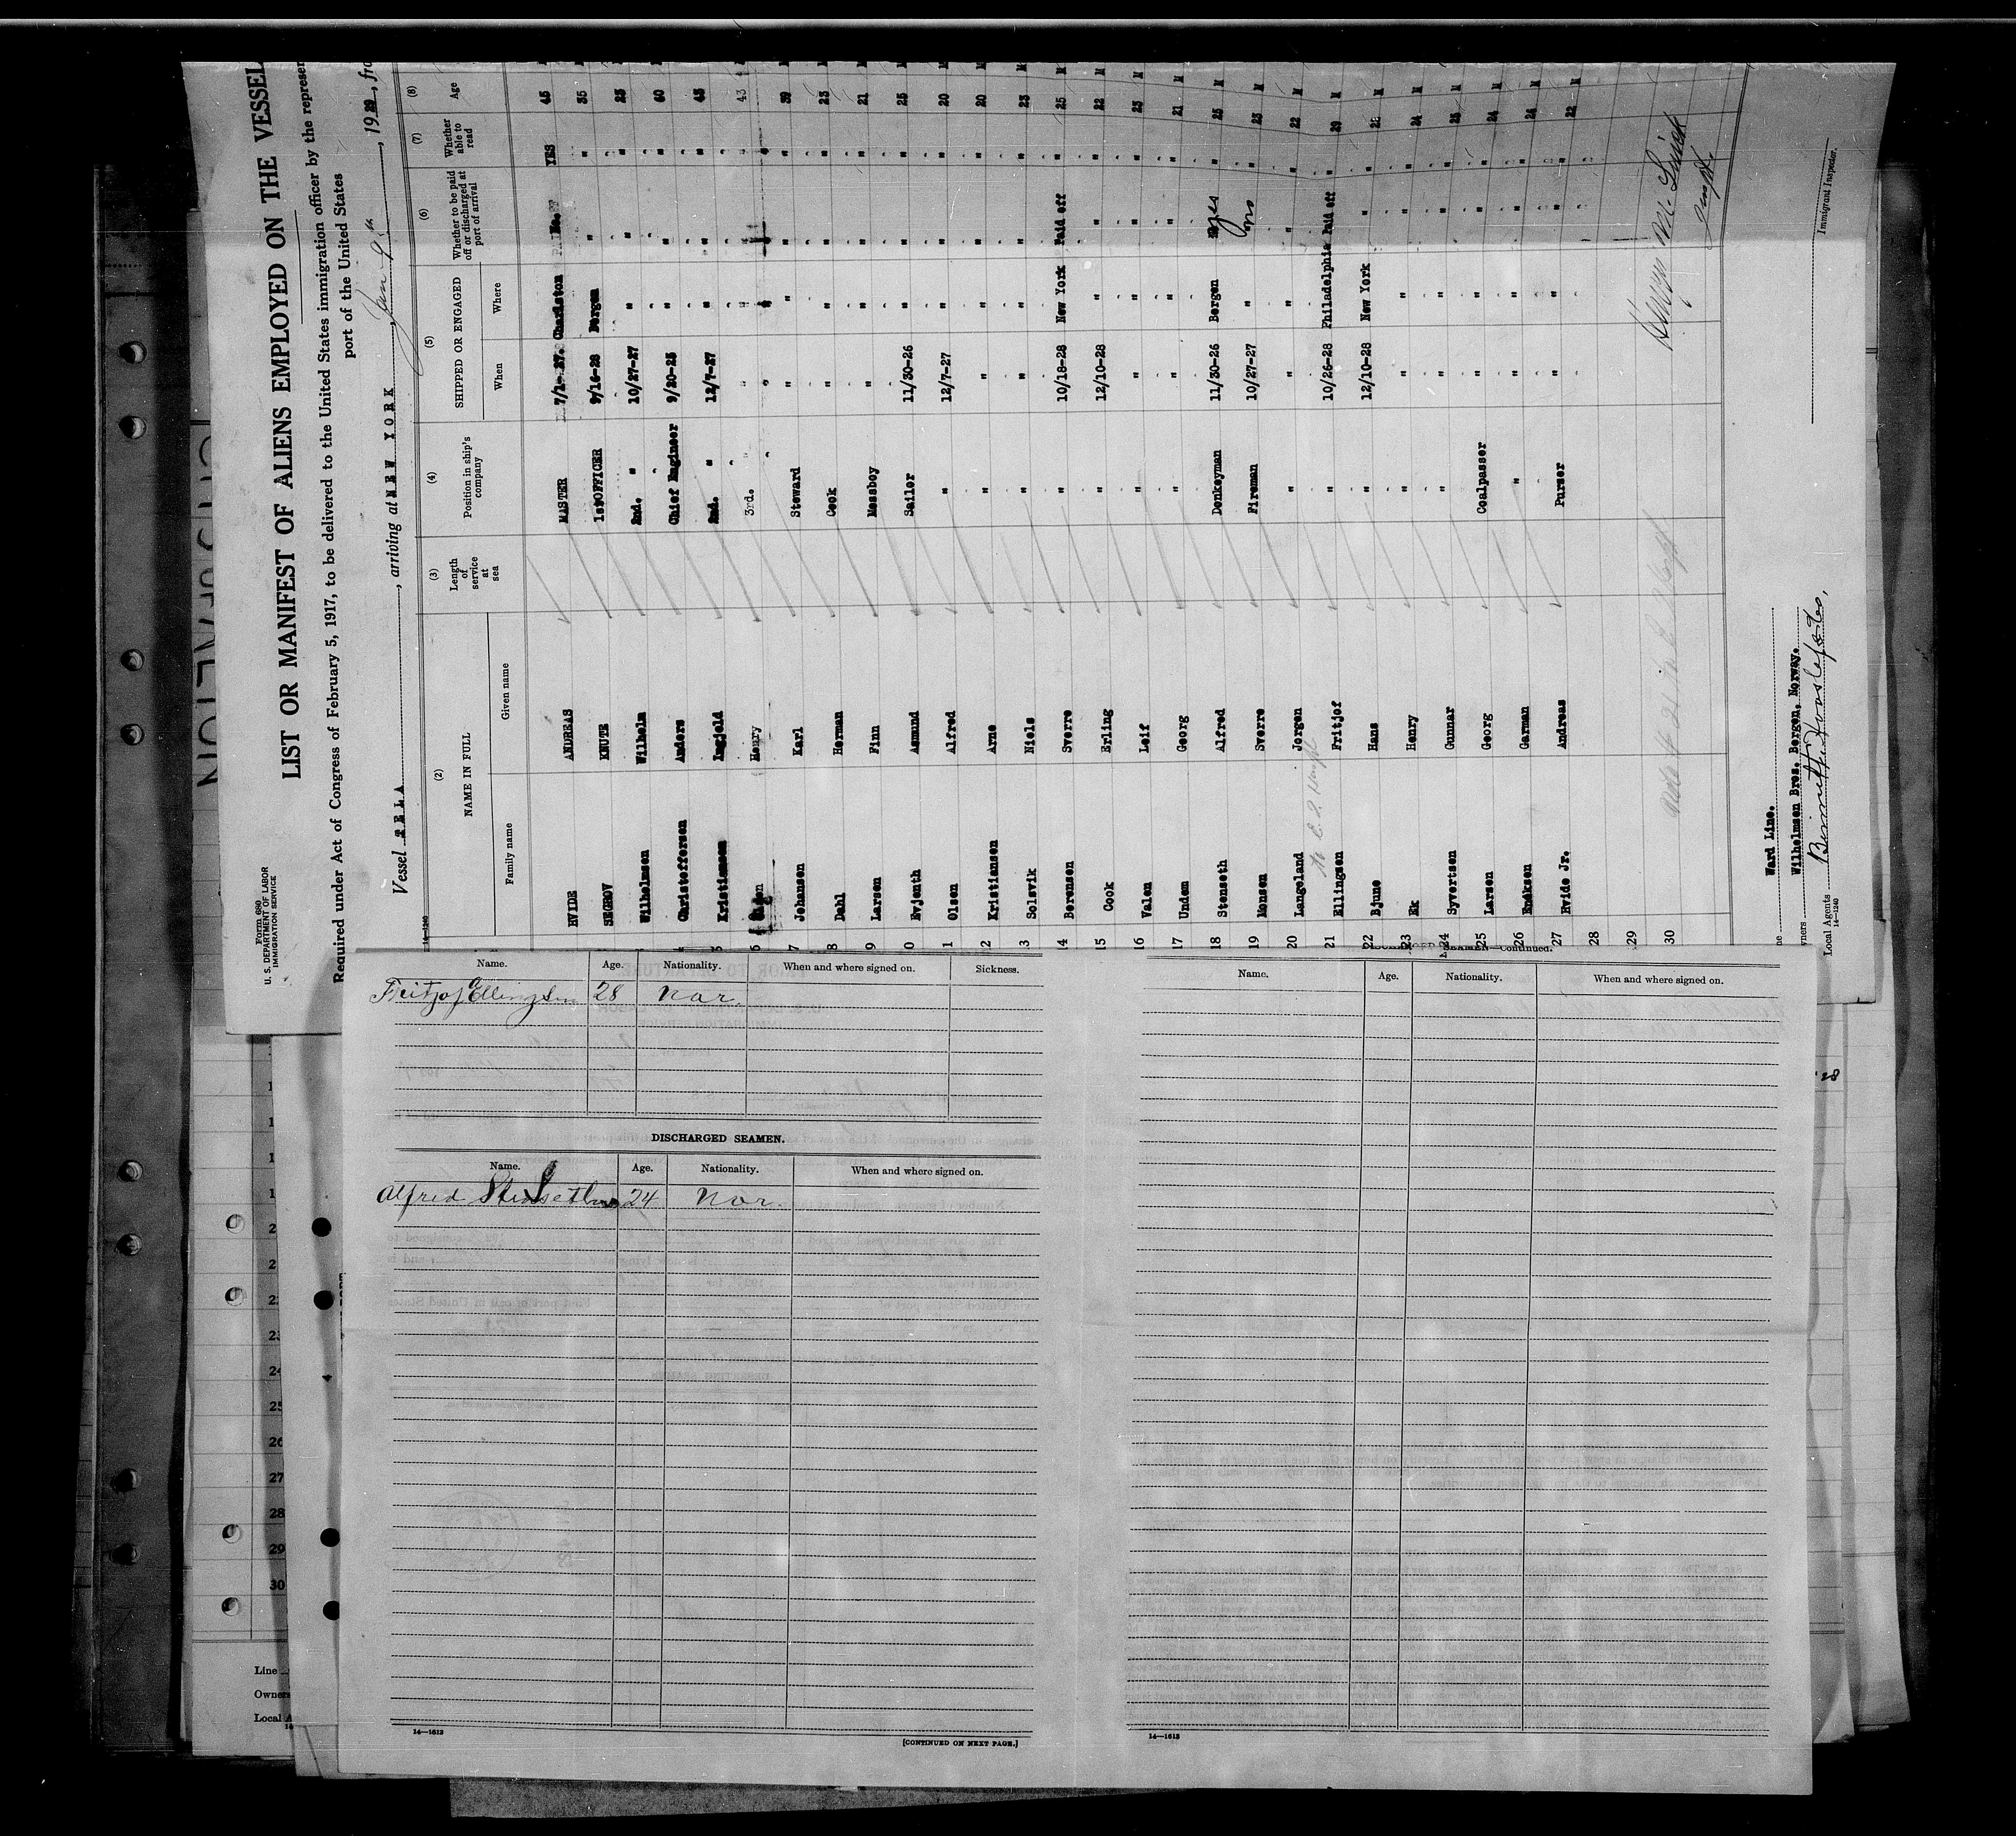 Form 680
U. S. DEPARTMENT OF LABOR
IMMIGRATION SERVICE
LIST OR MANIFEST OF ALIENS EMPLOYED ON THE VESSEL
Required under Act of Congress of February 5, 1917, to be delivered to the United States immigration officer by the represen
port of the United States
Vessel TELA, arriving at NEW YORK, Jan 9th, 1929, fro
14-1240
(2) (3) (4) (5) (6) (7) (8)
NAME IN FULL Length of service at sea Position in ship's company SHIPPED OR ENGAGED Whether to be paid off or discharged at port of arrival Whether able to read Age
Family name Given name When Where
HVIDE ANDREAS MASTER 7/1-27. Charlston No. YES 45
SEGROV KNUTE 1stOFFICER 9/16-28 Bergen " " 35
Wilhelmsen Wilhelm 2nd. " 10/27-27 " " " 25
Christoffersen Anders Chief Engineer 9/20-25 " " " 60
5 Kristiansen Ingjald 2nd. " 12/7-27 " " " 45
6 Olsen Henry 3rd. " " " " " 43
7 Johansen Karl Steward " " " " 39
8 Dahl Herman Cook " " " " 23
9 Larsen Finn Messboy " " " " 21
0 Evjenth Asmund Sailor 11/30-26 " " " 25 M
1 Olsen Alfred " 12/7-27 " " " 20 M
2 Kristiansen Arne " " " " " 20 M
3 Solsvik Niels " " " " " 23 M
14 Berensen Sverre " 10/18-28 New York Paid off " 25 M
15 Cook Erling " 12/10-28 " " " 22 M
16 Valen Leif " " " " " 23 M
17 Undem Georg " " " " " 21 M
18 Stenseth Alfred Donkeyman 11/30-26 Bergen yes " 25 M
19 Monsen Sverre Fireman 10/27-27 " no " 23 M
20 Langeland Jorgen " " " " " 22 M
21 Ellingsen Fritjof " 10/26-28 Philadelphia Paid off " 29 M
22 Bjune Hans " 12/10-28 New York " " M
23 Ek Henry " " " " " 24 M
24 Syvertsen Gunnar " " " " " 25 M
25 Larsen Georg Coalpasser " " " " 24 M
26 Enoksen Garman " " " " " 24 M
27 Hvide Jr. Andreas Purser " " " " 22 M
28
29
30
Ward Line.
Wilhelmsen Bros. Bergen, Norway.
wners
Local Agents
14-1240
Immigrant Inspector.
SEAMEN—Continued.
Name. Age. Nationality. When and where signed on. Sickness.
Fritjof Ellingsen 28 Nor.
DISCHARGED SEAMEN.
Name. Age. Nationality. When and where signed on.
Alfred Stenseth 24 Nor.
14—1613
[CONTINUED ON NEXT PAGE.]
Name. Age. Nationality. When and where signed on.
14—1613
2
2
22
23
24
25
26
27
28
29
30
Line
Owners
Local A